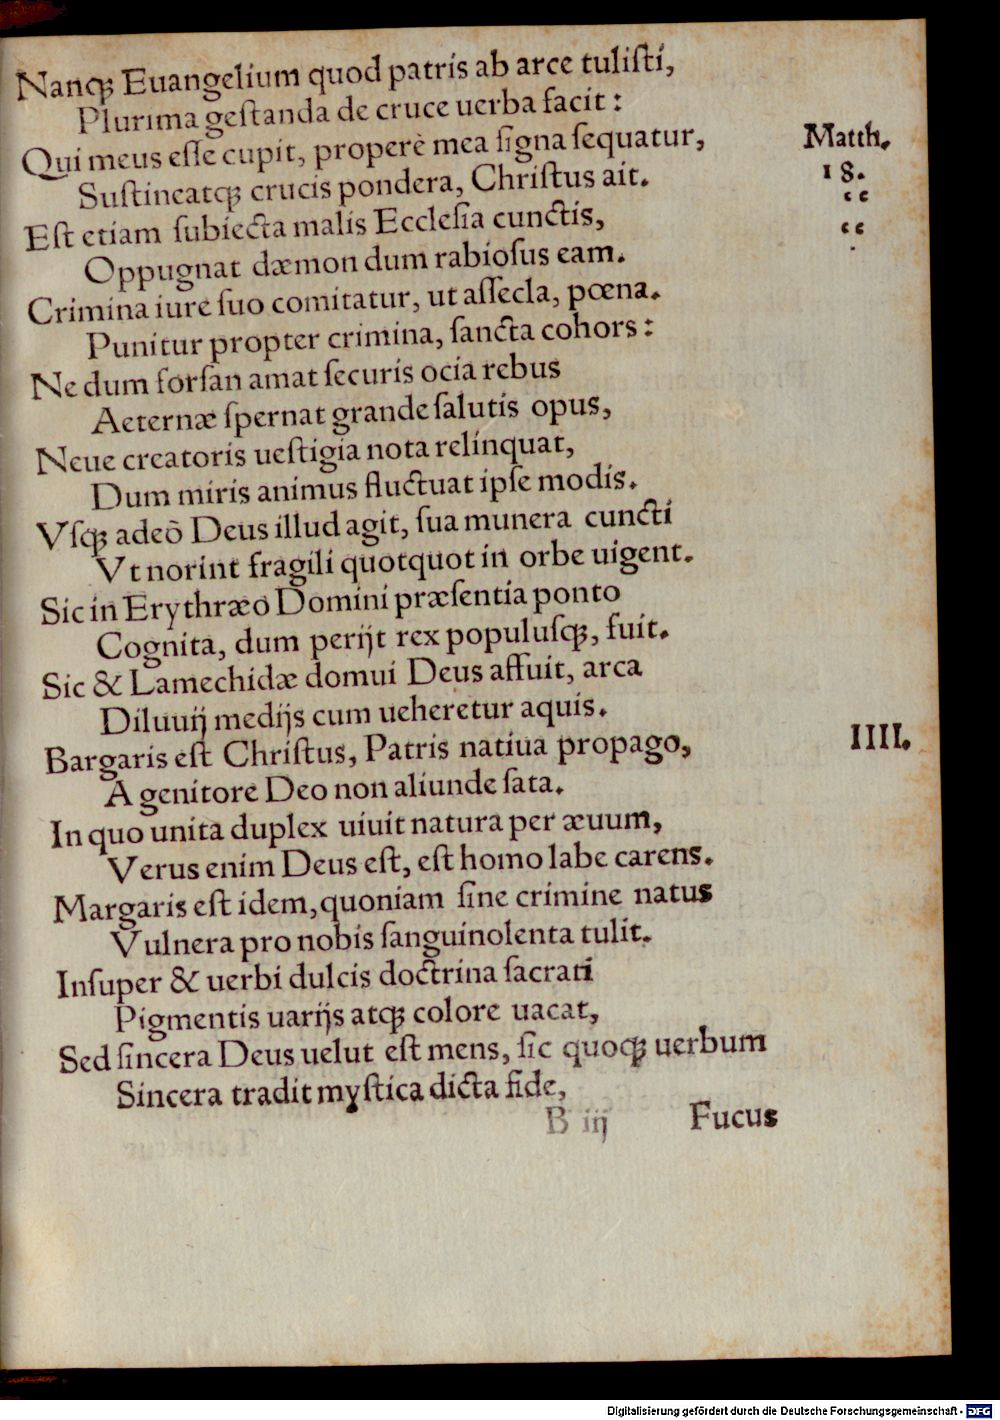 Nanqꝫ Euangelium quod patris ab arce tuliſti,
Plurima geſtanda de cruce uerba facit:
Qui meus eſſe cupit, properè mea ſigna ſequatur,
Matth.
18.
Suſtineatqꝫ crucis pondera, Chriſtus ait.
cc
Eſt etiam ſubiecta malis Eccleſia cunctis,
cc
Oppugnat dæmon dum rabioſus eam.
Crimina iure ſuo comitatur, ut aſſecla, pœna.
Punitur propter crimina, ſancta cohors:
Ne dum forſan amat ſecuris ocia rebus
Aeternæ ſpernat grande ſalutis opus,
Neue creatoris ueſtigia nota relinquat,
Dum miris animus fluctuat ipſe modis.
Vſqꝫ adeò Deus illud agit, ſua munera cuncti
Vt norint fragili quotquot in orbe uigent.
Sic in Erythræo Domini præſentia ponto
Cognita, dum perijt rex populuſqꝫ, fuit.
Sic & Lamechidæ domui Deus affuit, arca
Diluuij medijs cum ueheretur aquis.
Bargaris eſt Chriſtus, Patris natiua propago,
IIII.
A genitore Deo non aliunde ſata.
In quo unita duplex uiuit natura per æuum,
Verus enim Deus eſt, eſt homo labe carens.
Margaris eſt idem, quoniam ſine crimine natus
Vulnera pro nobis ſanguinolenta tulit.
Inſuper & uerbi dulcis doctrina ſacrati
Pigmentis uarijs atqꝫ colore uacat,
Sed ſincera Deus uelut eſt mens, ſic quoqꝫ uerbum
Sincera tradit myſtica dicta fide,
B iij Fucus
Digitalisierung gefördert durch die Deutsche Forschungsgemeinschaft - DFG